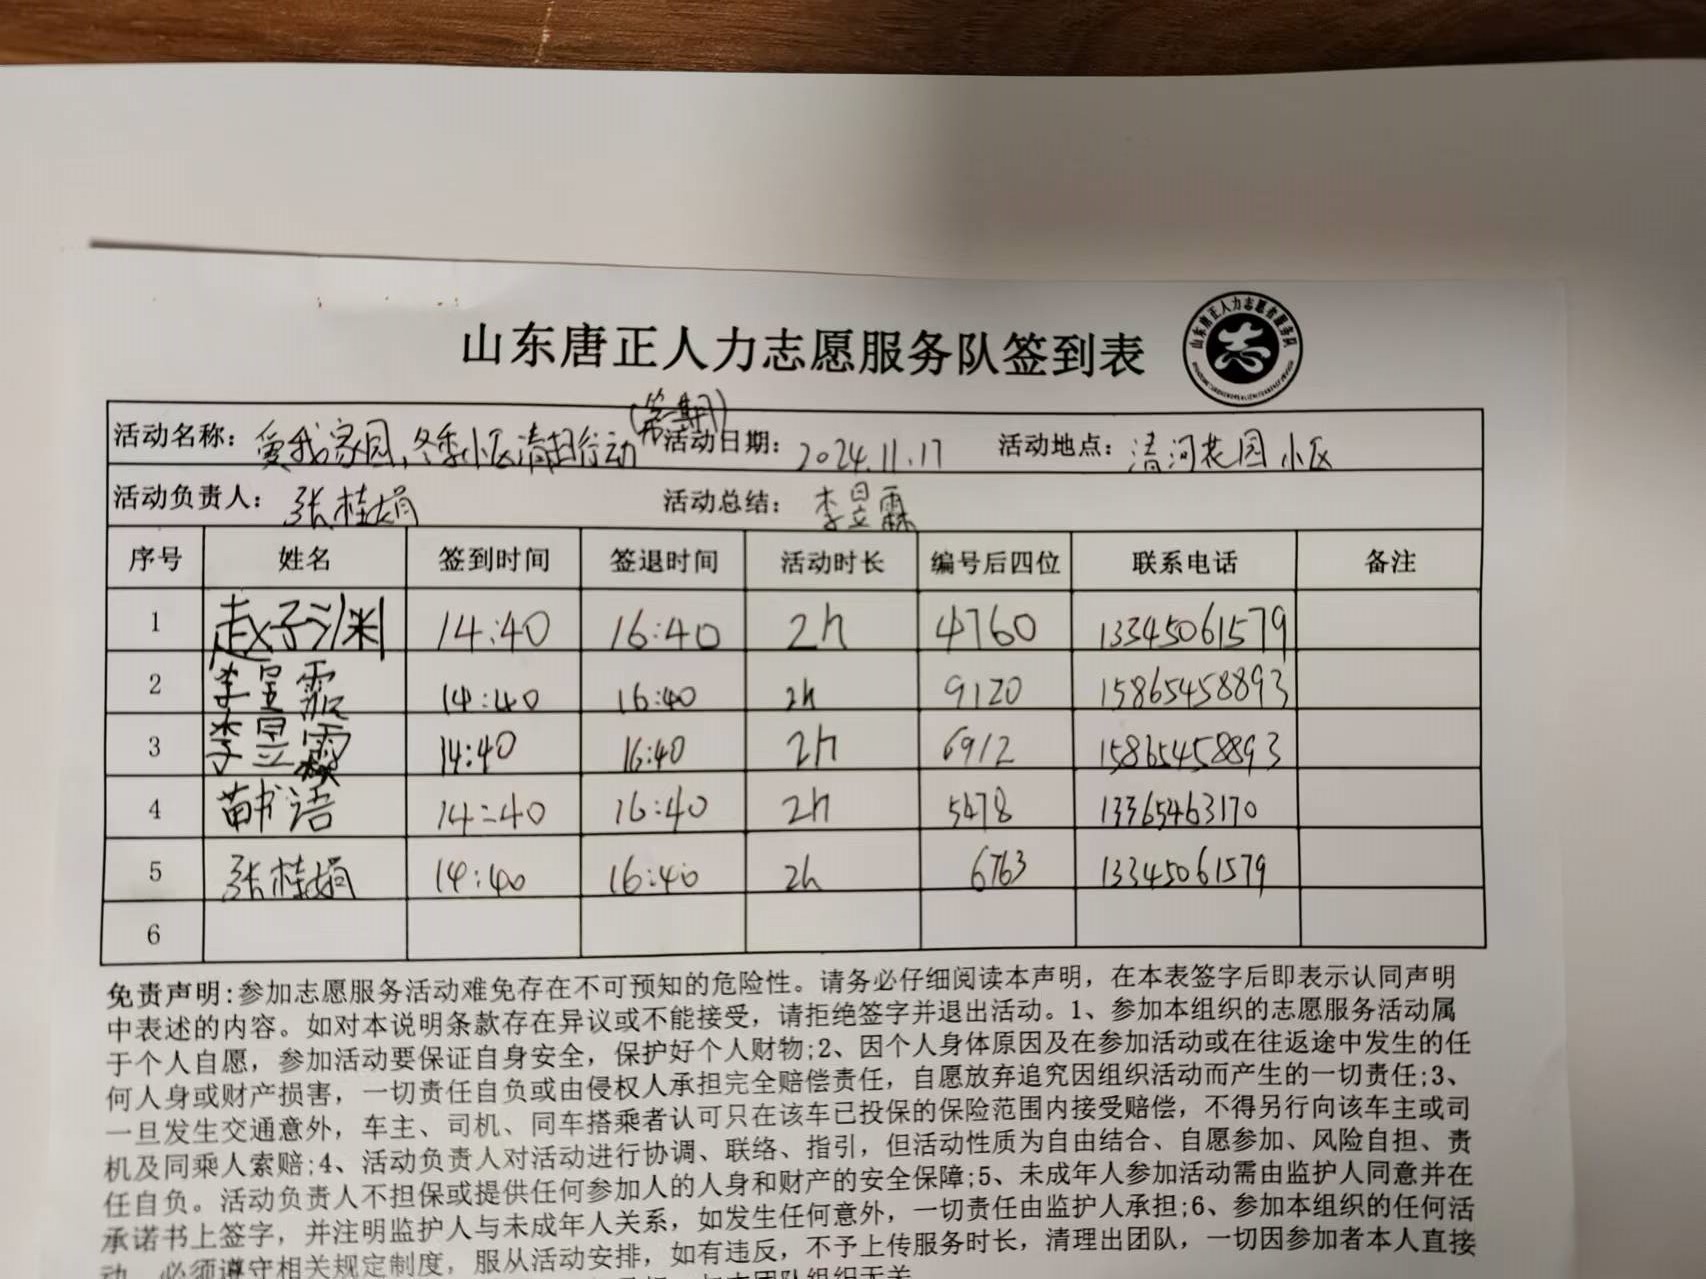 山东唐正人力志愿服务队签到表
山东唐正人力志愿者服务队
活动名称：爱我家园，冬季小区清扫行动 活动日期：2024.11.17 活动地点：清河花园小区
活动负责人：张桂娟 活动总结：李昱霖
序号 姓名 签到时间 签退时间 活动时长 编号后四位 联系电话 备注
1 赵子渊 14:40 16:40 2h 4760 13345061579
2 李昱霏 14:40 16:40 2h 9120 15865458893
3 李昱霖 14:40 16:40 2h 6912 15865458893
4 苗书语 14:40 16:40 2h 5478 13365463170
5 张桂娟 14:40 16:40 2h 6763 13345061579
6
免责声明:参加志愿服务活动难免存在不可预知的危险性。请务必仔细阅读本声明，在本表签字后即表示认同声明
中表述的内容。如对本说明条款存在异议或不能接受，请拒绝签字并退出活动。1、参加本组织的志愿服务活动属
于个人自愿，参加活动要保证自身安全，保护好个人财物;2、因个人身体原因及在参加活动或在往返途中发生的任
何人身或财产损害，一切责任自负或由侵权人承担完全赔偿责任，自愿放弃追究因组织活动而产生的一切责任;3、
一旦发生交通意外，车主、司机、同车搭乘者认可只在该车已投保的保险范围内接受赔偿，不得另行向该车主或司
机及同乘人索赔;4、活动负责人对活动进行协调、联络、指引，但活动性质为自由结合、自愿参加、风险自担、责
任自负。活动负责人不担保或提供任何参加人的人身和财产的安全保障;5、未成年人参加活动需由监护人同意并在
承诺书上签字，并注明监护人与未成年人关系，如发生任何意外，一切责任由监护人承担;6、参加本组织的任何活
动，必须遵守相关规定制度，服从活动安排，如有违反，不予上传服务时长，清理出团队，一切因参加者本人直接